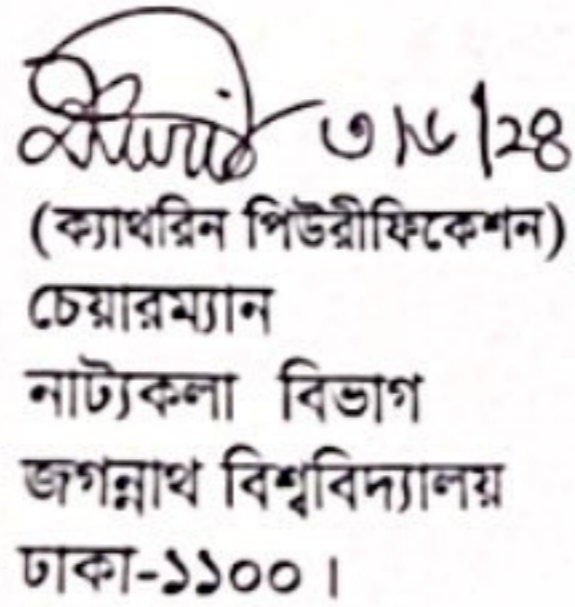 ৩/৬/২৪
(ক্যাথরিন পিউরীফিকেশন)
চেয়ারম্যান
নাট্যকলা বিভাগ
জগন্নাথ বিশ্ববিদ্যালয়
ঢাকা-১১০০।